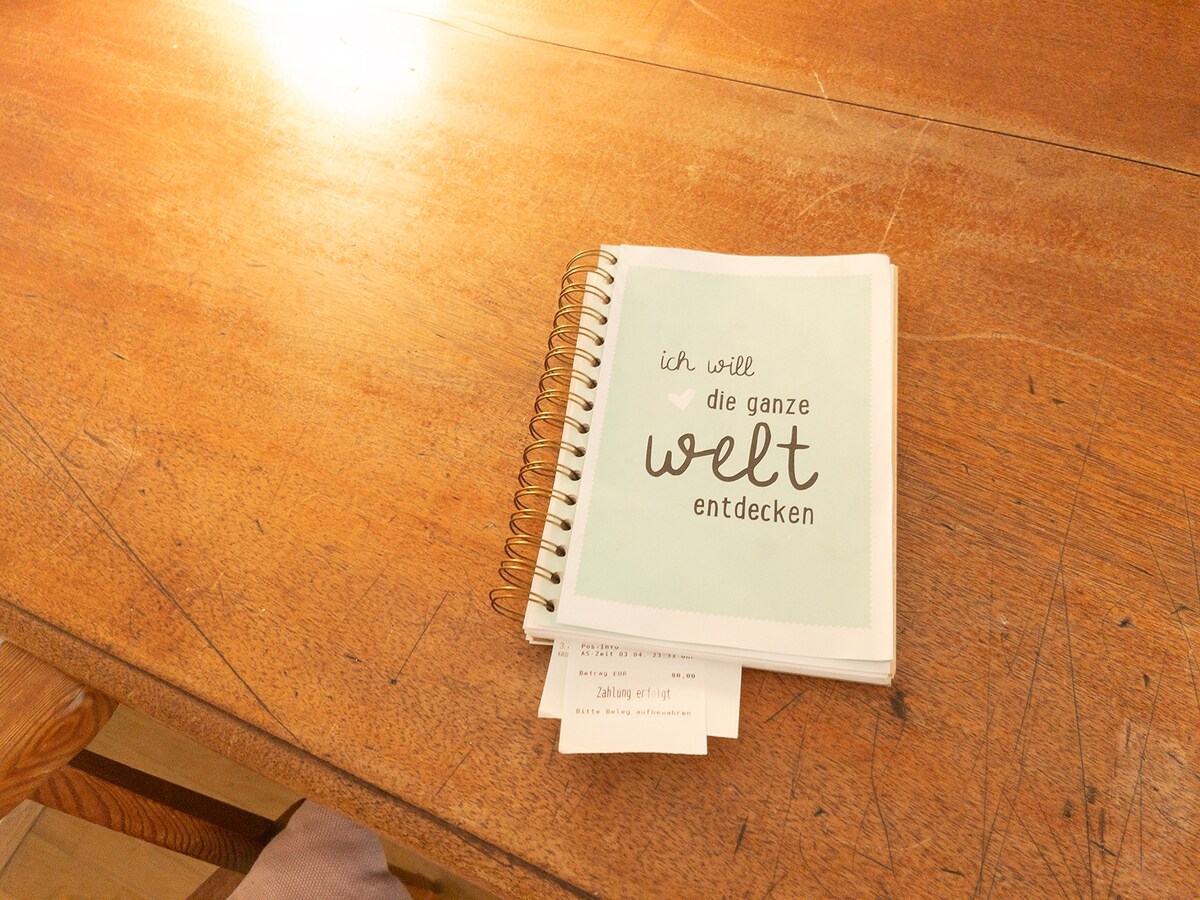 ich will
die ganze
welt
entdecken
Pos-Info
AS-Zeit 03.04. 23:33 Uhr
Betrag EUR 80,00
Zahlung erfolgt
Bitte Beleg aufbewahren